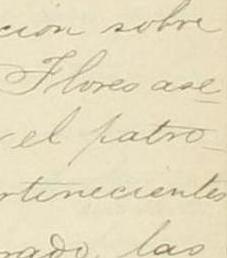 ción sobre
Flores ase-
el patro-
rtenecientes
rado, las